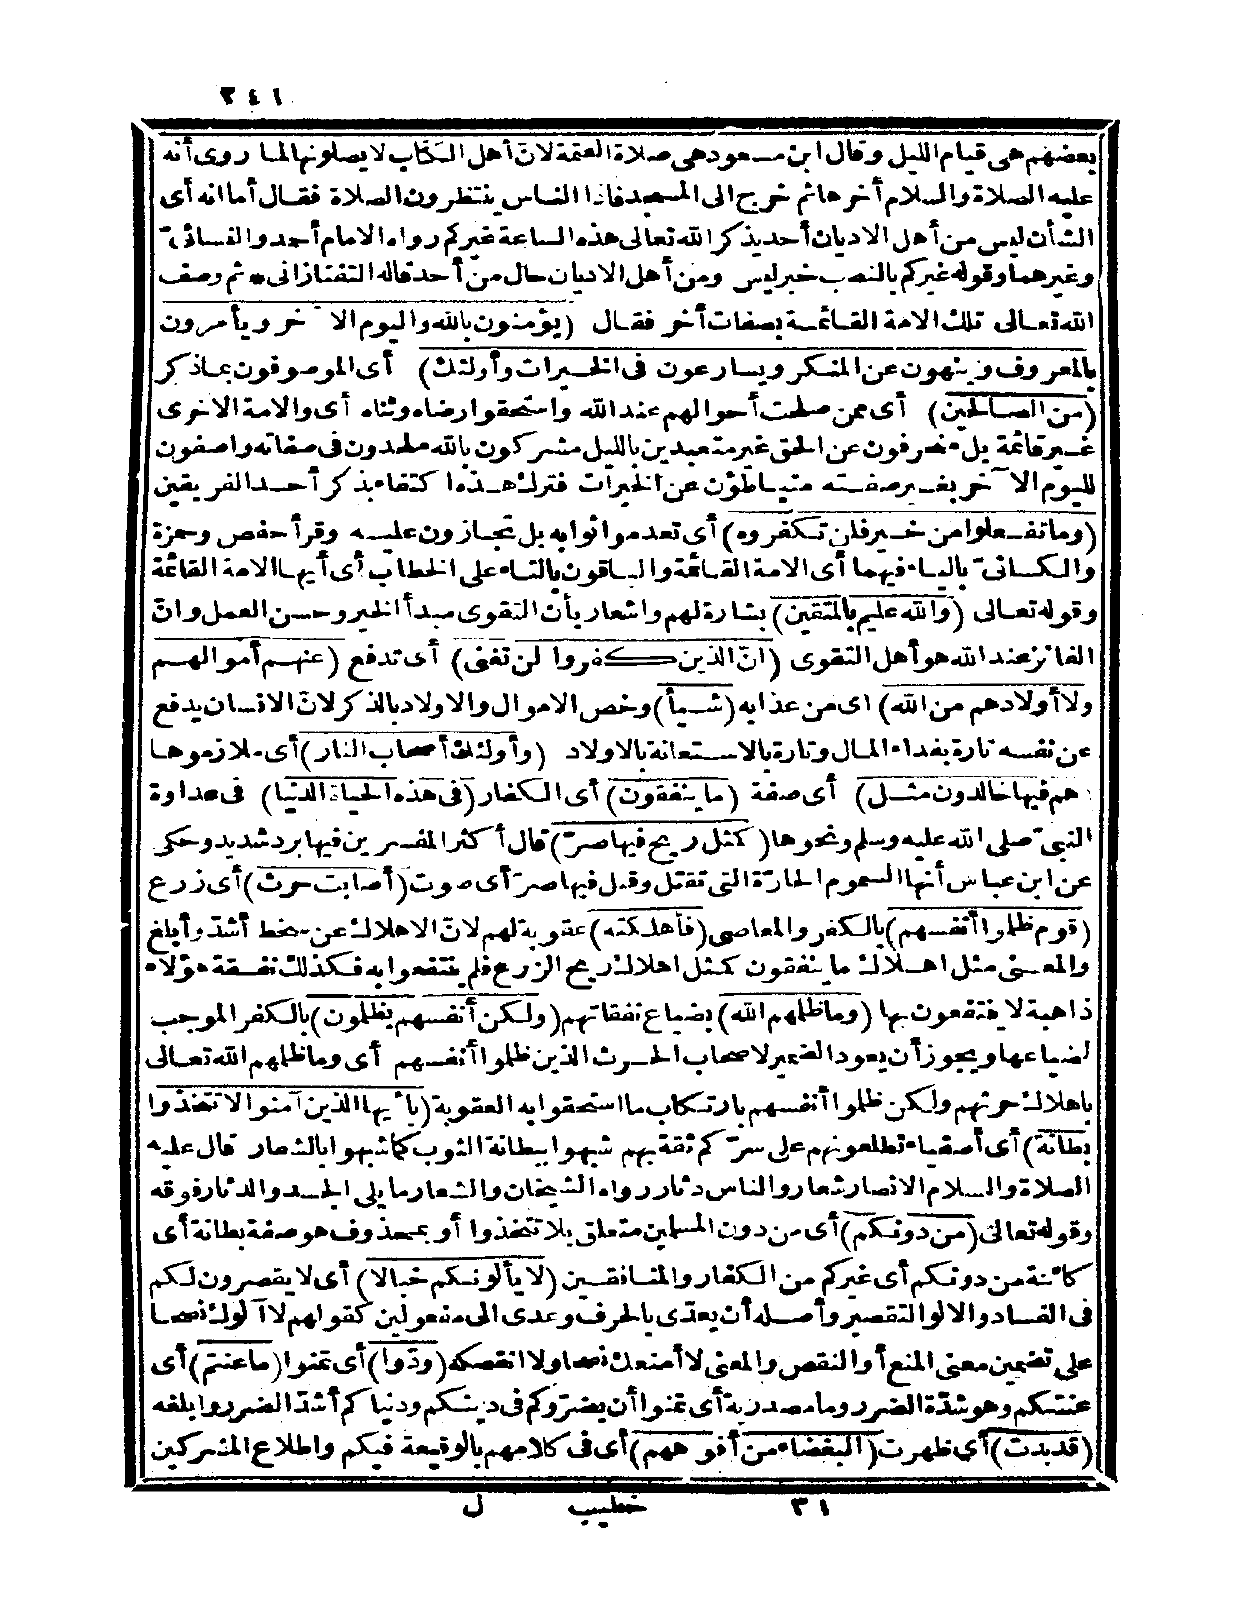 ٢٤١
بعضهم هى قيام الليل وقال ابن مسعود هى صلاة العتمة لانّ أهل الكتاب لا يصلونها لما روى أنه
عليه الصلاة والسلام أخرها ثم خرج الى المسجد فاذا الناس ينتظرون الصلاة فقال أما انه أى
الشأن ليس من أهل الاديان أحد يذكر الله تعالى هذه الساعة غيركم رواه الامام أحمد والنسائىّ
وغيرهما وقوله غيركم بالنصب خبر ليس ومن أهل الاديان حال من أحد قاله التفتازانى * ثم وصف
الله تعالى تلك الامة القائمة بصفات أخر فقال (يؤمنون بالله واليوم الآخر ويأمرون
بالمعروف وينهون عن المنكر ويسارعون فى الخيرات وأولئك) أى الموصوفون بما ذكر
(من الصالحين) أى ممن صلحت أحوالهم عند الله واستحقوا رضاه وثناه أى والامة الاخرى
غير قائمة بل منحرفون عن الحق غير متعبدين بالليل مشركون بالله ملحدون فى صفاته واصفون
لليوم الآخر بغير صفته متباطؤن عن الخيرات فترك هذه اكتفاء بذكر أحد الفريقين
(وما تفعلوا من خير فلن تكفروه) أى تعدموا ثوابه بل تجازون عليه وقرأ حفص وحمزة
والكسائىّ بالياء فيهما أى الامة القائمة والباقون بالتاء على الخطاب أى أيها الامة القائمة
وقوله تعالى (والله عليم بالمتقين) بشارة لهم واشعار بأن التقوى مبدأ الخير وحسن العمل وانّ
الفائز عند الله هو أهل التقوى (انّ الذين كفروا لن تغنى) أى تدفع (عنهم أموالهم
ولا أولادهم من الله) اى من عذابه (شيأ) وخص الاموال والاولاد بالذكر لانّ الانسان يدفع
عن نفسه تارة بفداء المال وتارة بالاستعانة بالاولاد (وأولئك أصحاب النار) أى ملازموها
(هم فيها خالدون مثل) أى صفة (ما ينفقون) أى الكفار (فى هذه الحياة الدنيا) فى عداوة
النبىّ صلى الله عليه وسلم ونحوها (كمثل ريح فيها صرّ) قال أكثر المفسرين فيها برد شديد وحكى
عن ابن عباس أنها السموم الحارّة التى تقتل وقيل فيها صرّ أى صوت (أصابت حرث) أى زرع
(قوم ظلموا أنفسهم) بالكفر والمعاصى (فأهلكته) عقوبة لهم لانّ الاهلاك عن سخط أشدّ وأبلغ
والمعنى مثل اهلاك ما ينفقون كمثل اهلاك ريح الزرع فلم ينتفعوا به فكذلك نفقة هؤلاء
ذاهبة لا ينتفعون بها (وما ظلمهم الله) بضياع نفقاتهم (ولكن أنفسهم يظلمون) بالكفر الموجب
لضياعها ويجوز أن يعود الضمير لاصحاب الحرث الذين ظلموا أنفسهم أى وما ظلمهم الله تعالى
باهلاك حرثهم ولكن ظلموا أنفسهم بارتكاب ما استحقوا به العقوبة (يا أيها الذين آمنوا لا تتخذوا
بطانة) أى أصفياء تطلعونهم على سرّكم ثقة بهم شبهوا ببطانة الثوب كما شبهوا بالشعار قال عليه
الصلاة والسلام الانصار شعار والناس دثار رواه الشيخان والشعار ما يلى الجسد والدثار فوقه
وقوله تعالى (من دونكم) أى من دون المسلمين متعلق بلا تتخذوا أو بمحذوف هو صفة بطانة أى
كائنة من دونكم أى غيركم من الكفار والمنافقين (لا يألونكم خبالا) أى لا يقصرون لكم
فى الفساد والالو التقصير وأصله أن يعدّى بالحرف وعدى الى مفعولين كقولهم لا آلوك نصحا
على تضمين معنى المنع أو النقص والمعنى لا أمنعك نصحا ولا انقصكه (ودّوا) أى تمنوا (ما عنتم) أى
عنتكم وهو شدّة الضرر وما مصدرية أى تمنوا أن يضرّوكم فى دينكم ودنياكم أشدّ الضرر وابلغه
(قد بدت) أى ظهرت (البغضاء من أفواههم) أى فى كلامهم بالوقيعة فيكم واطلاع المشركين
٣١ خطيب ل